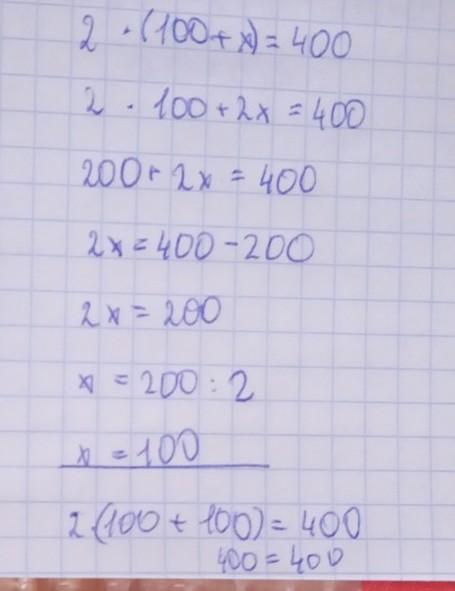 2 · (100 + x) = 400
2 · 100 + 2x = 400
200 + 2x = 400
2x = 400 - 200
2x = 200
x = 200 : 2
x = 100
2·(100 + 100) = 400
400 = 400